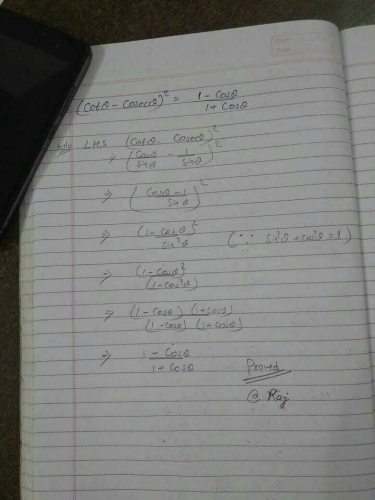 (Cotθ - Cosecθ)² = 1 - Cosθ / 1 + Cosθ
LHS (Cotθ - Cosecθ)²
⇒ (Cosθ / Sinθ - 1 / Sinθ)²
⇒ (Cosθ - 1 / Sinθ)²
⇒ (1 - Cosθ)² / Sin²θ (∵ Sin²θ + Cos²θ = 1)
⇒ (1 - Cosθ)² / (1 - Cos²θ)
⇒ (1 - Cosθ) (1 + Cosθ) / (1 - Cosθ) (1 + Cosθ)
⇒ 1 - Cosθ / 1 + Cosθ
Proved
@ Raj